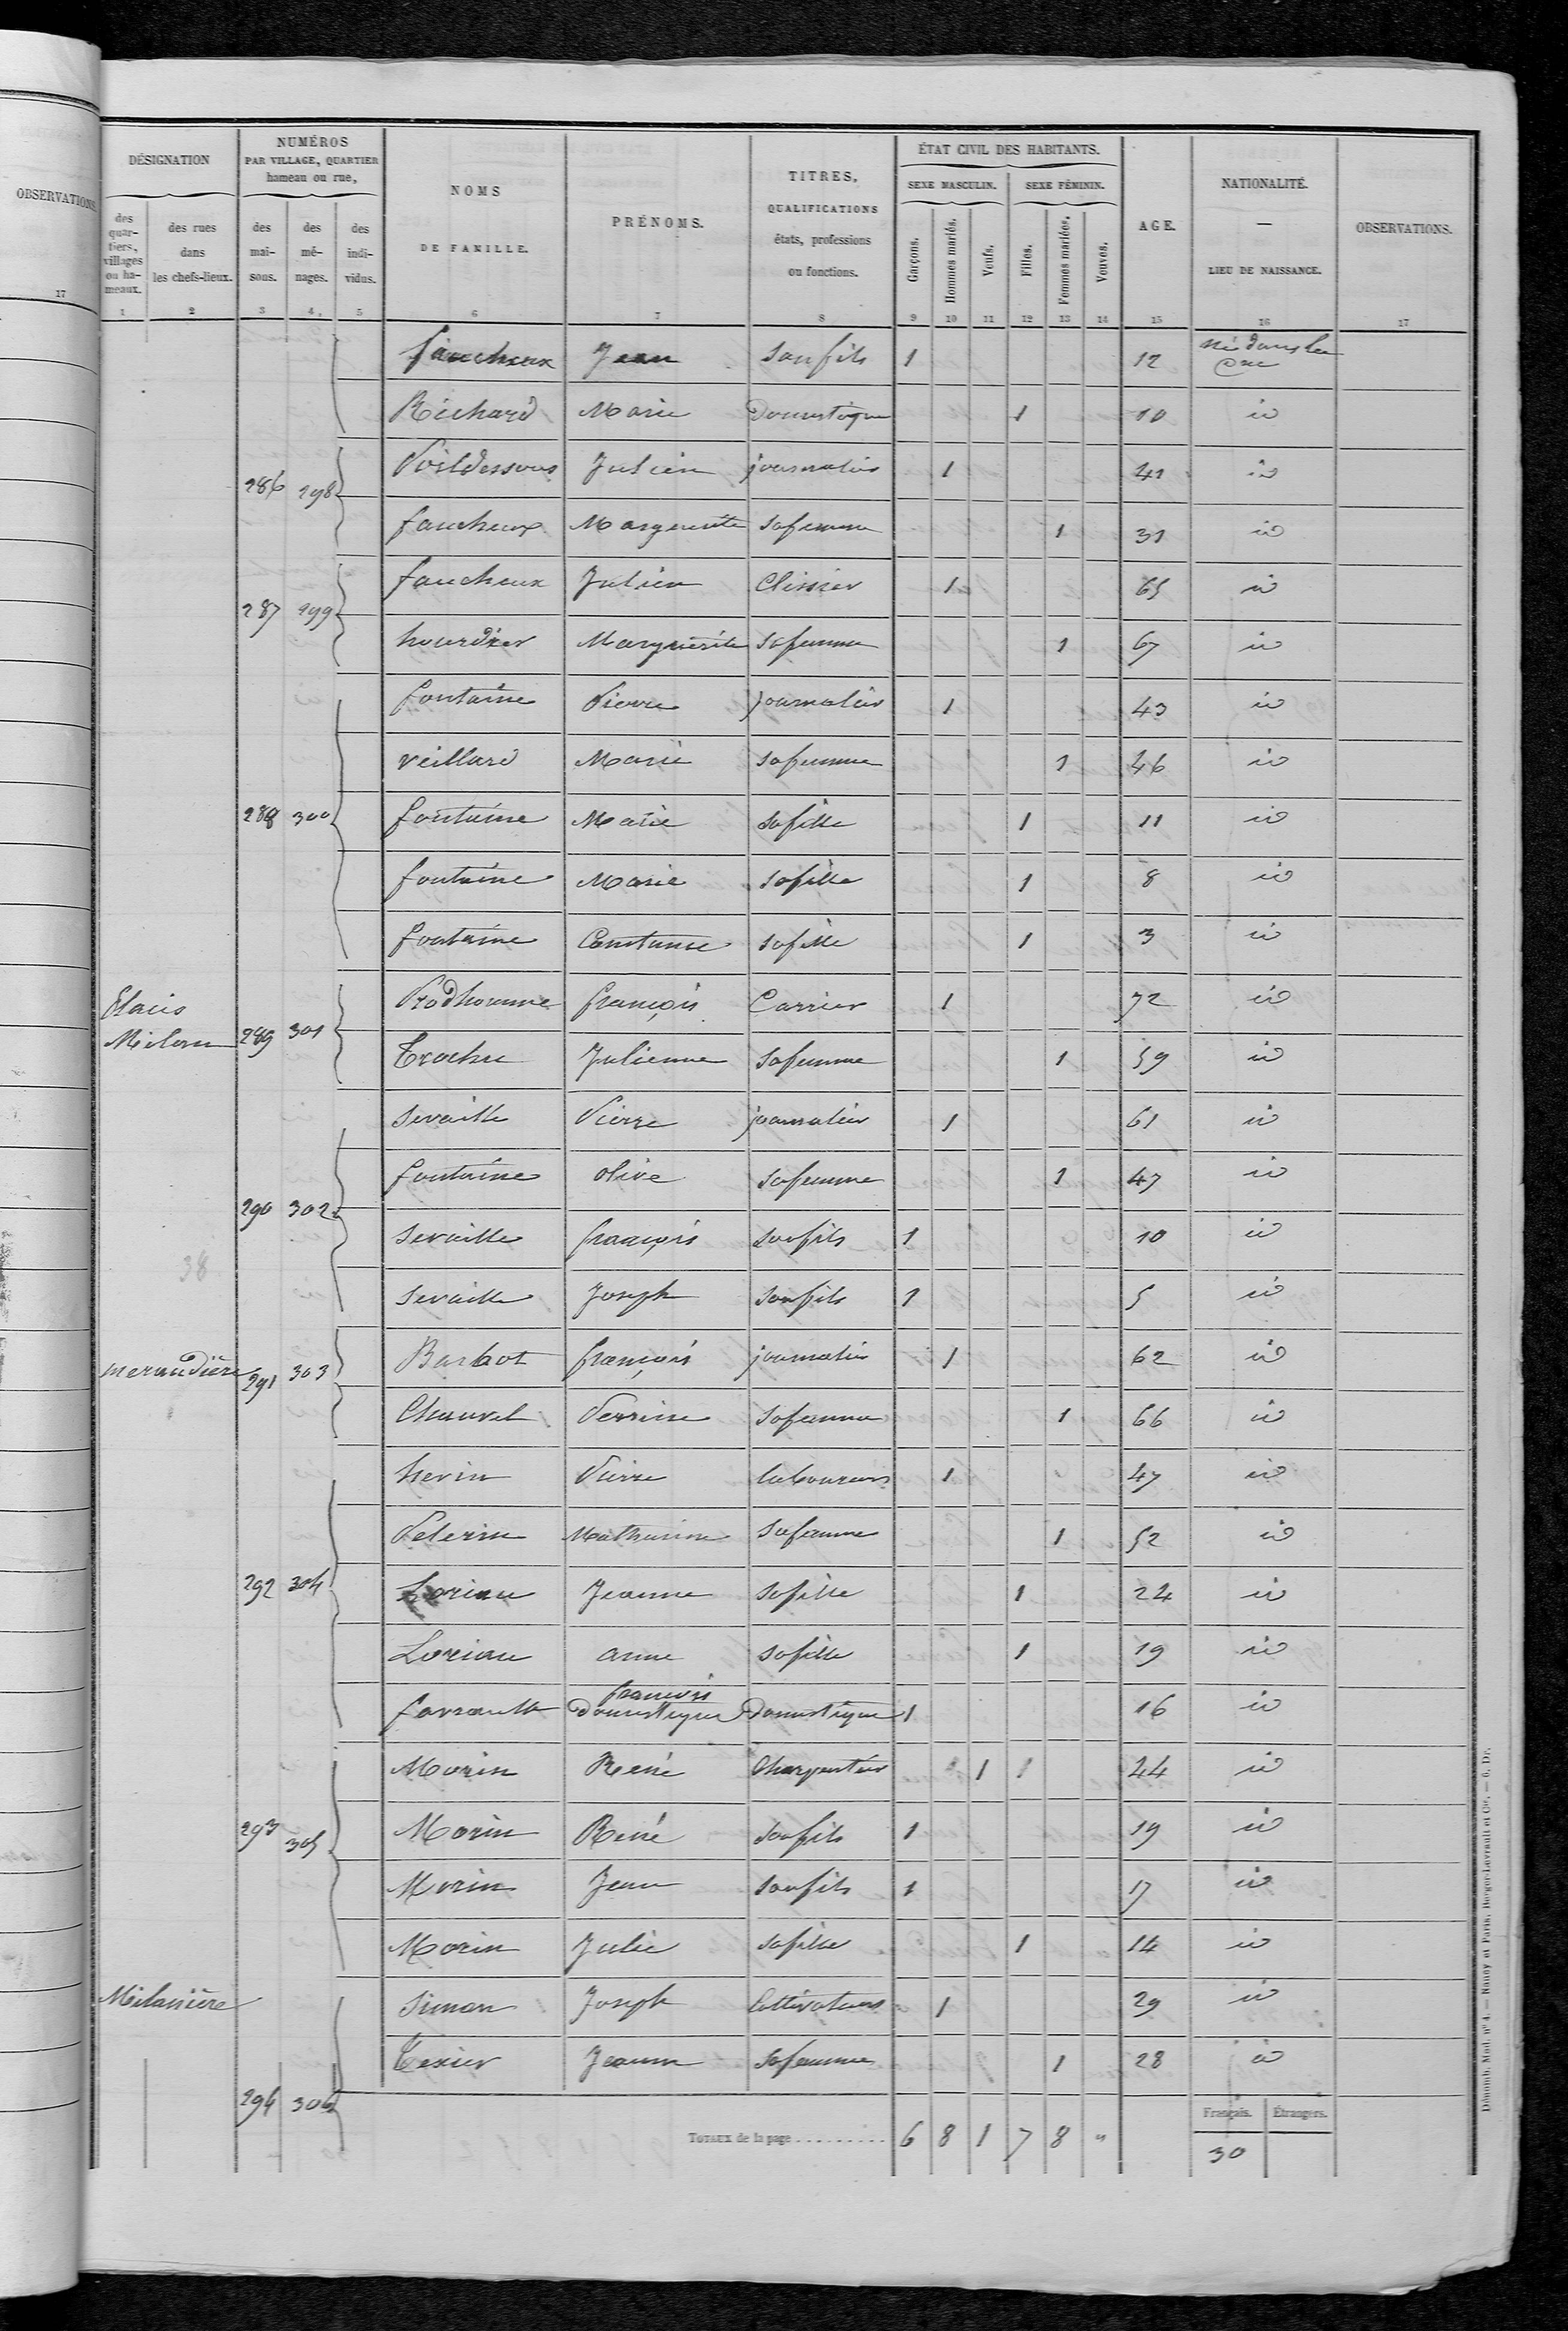 OBSERVATIONS.
17
DÉSIGNATION
des quartiers, villages ou hameaux.
des rues dans les chefs-lieux.
NUMÉROS
PAR VILLAGE, QUARTIER
hameau ou rue,
des maisons.
des ménages.
des individus.
NOMS
DE FAMILLE.
PRÉNOMS.
TITRES,
QUALIFICATIONS
états, professions
ou fonctions.
ÉTAT CIVIL DES HABITANTS.
SEXE MASCULIN.
SEXE FÉMININ.
Garçons.
Hommes mariés.
Veufs.
Filles.
Femmes mariées.
Veuves.
AGE.
NATIONALITÉ.
—
LIEU DE NAISSANCE.
OBSERVATIONS.
1 2 3 4 5 6 7 8 9 10 11 12 13 14 15 16 17
faucheux Jean son fils 1 12 né dans la Cne
Richard Marie Domestique 1 10 id
Poildessous Julien journalier 1 41 id
286 298
faucheux Marguerite sa femme 1 31 id
faucheux Julien Clissier 1 65 id
287 299
hourdier Marguerite sa femme 1 67 id
fontaine Pierre journalier 1 43 id
veillard Marie sa femme 1 46 id
288 300 fontaine Marie sa fille 1 11 id
fontaine Marie sa fille 1 8 id
fontaine Constance sa fille 1 3 id
Prodhomme françois Carrier 1 72 id
Milon 289 301
Trochu Julienne sa femme 1 59 id
Sevaille Pierre journalier 1 61 id
fontaine olive sa femme 1 47 id
290 302
Sevaille françois son fils 1 10 id
38
Sevaille Joseph son fils 1 5 id
meraudière 291 303 Barbot françois journalier 1 62 id
Chauvel Perrine sa femme 1 66 id
hevin Pierre laboureur 1 47 id
Pelerin Mathurine sa femme 1 52 id
292 304 Loriau Jeanne sa fille 1 24 id
Loriau anne sa fille 1 19 id
françois
domestique Domestique 1 16 id
Morin René Charpentier 1 1 44 id
293 305 Morin René son fils 1 19 id
Morin Jean son fils 1 17 id
Morin Julie sa fille 1 14 id
Milanière Simon Joseph Cultivateur 1 29 id
Texier Jeanne sa femme 1 28 id
294 306
Français. Étrangers.
TOTAUX de la page 6 8 1 7 8 "
30
Dénomb. Mod. nº 4. — Nancy et Paris, Berger-Levrault et Cie. — 6. Dr.